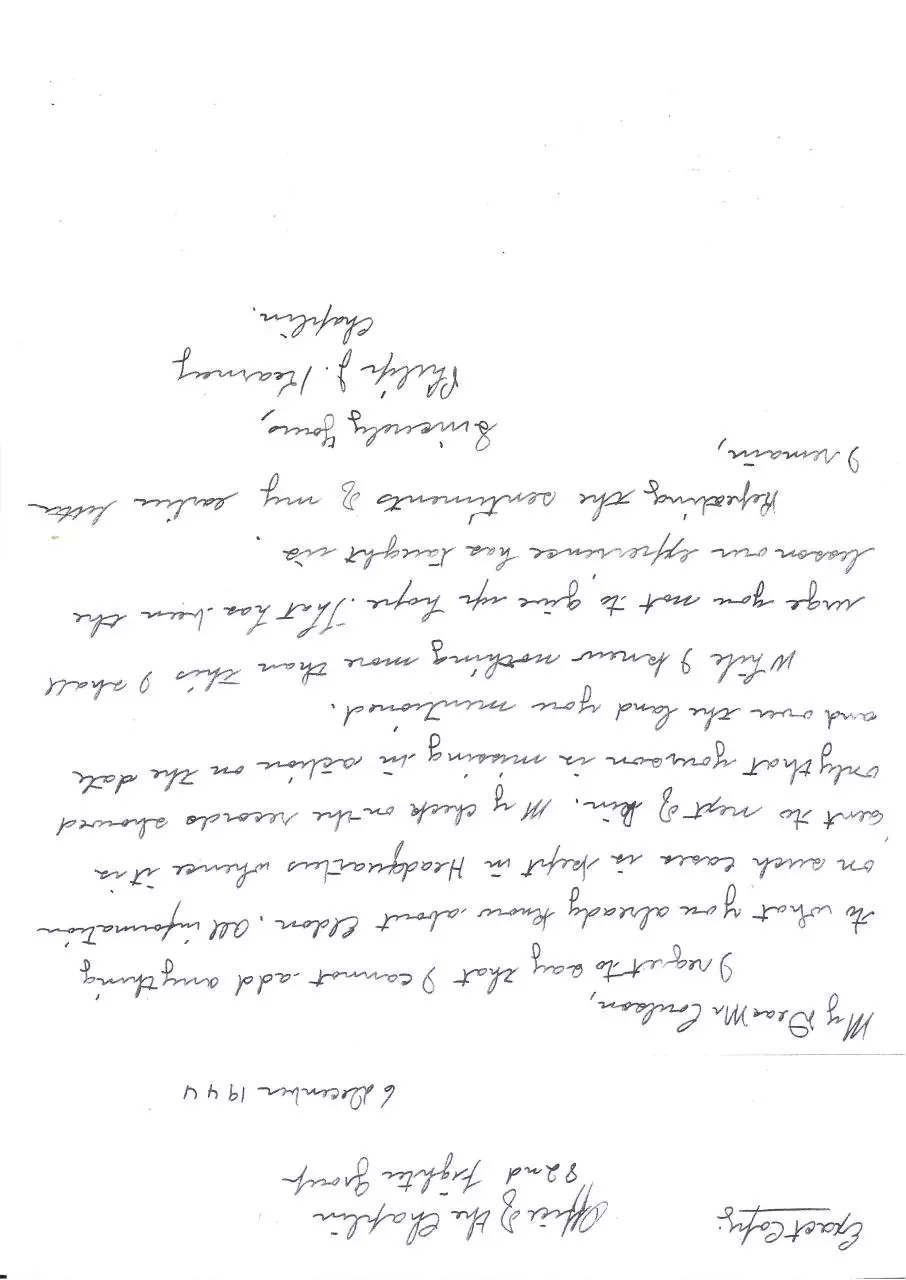 Exact Copy
Office of the Chaplin
82nd Fighter Group
6 December 1944
My Dear Mr Coulson,
I regret to say that I cannot add anything
to what you already know about Eldon. All information
on such cases is kept in Headquarters whence it is
sent to next of kin. My check on the records showed
only that your son is missing in action on the date
and over the land you mentioned.
While I know nothing more than this I shall
urge you not to give up hope. That has been the
lesson our experience has taught us.
Repeating the sentiments of my earlier letter
I remain,
Sincerely Yours,
Philip J. Kearney
Chaplin.